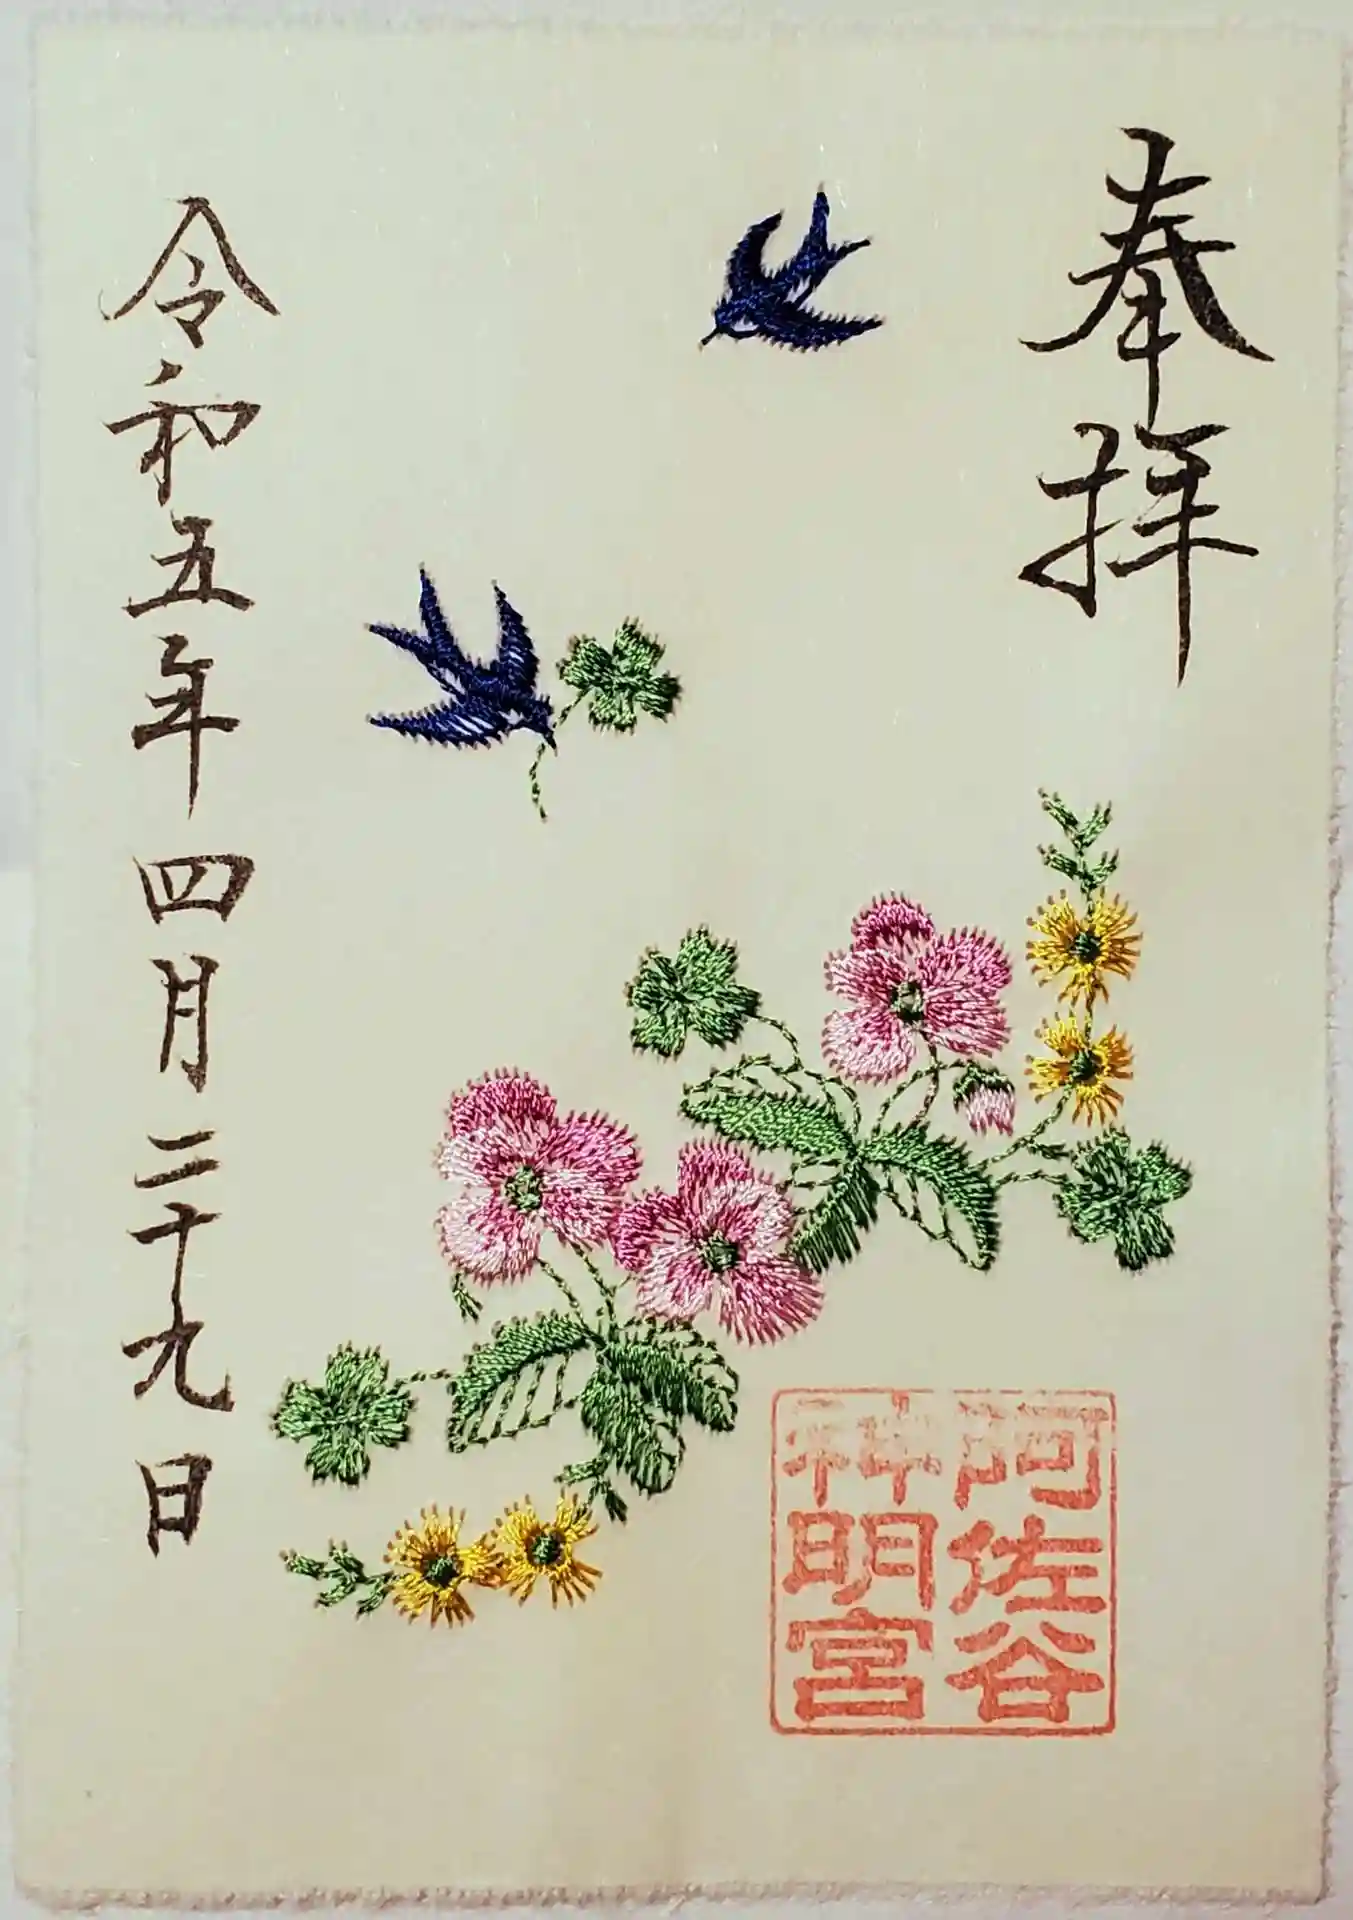 奉拝
阿佐谷
神明宮
令和五年四月二十九日